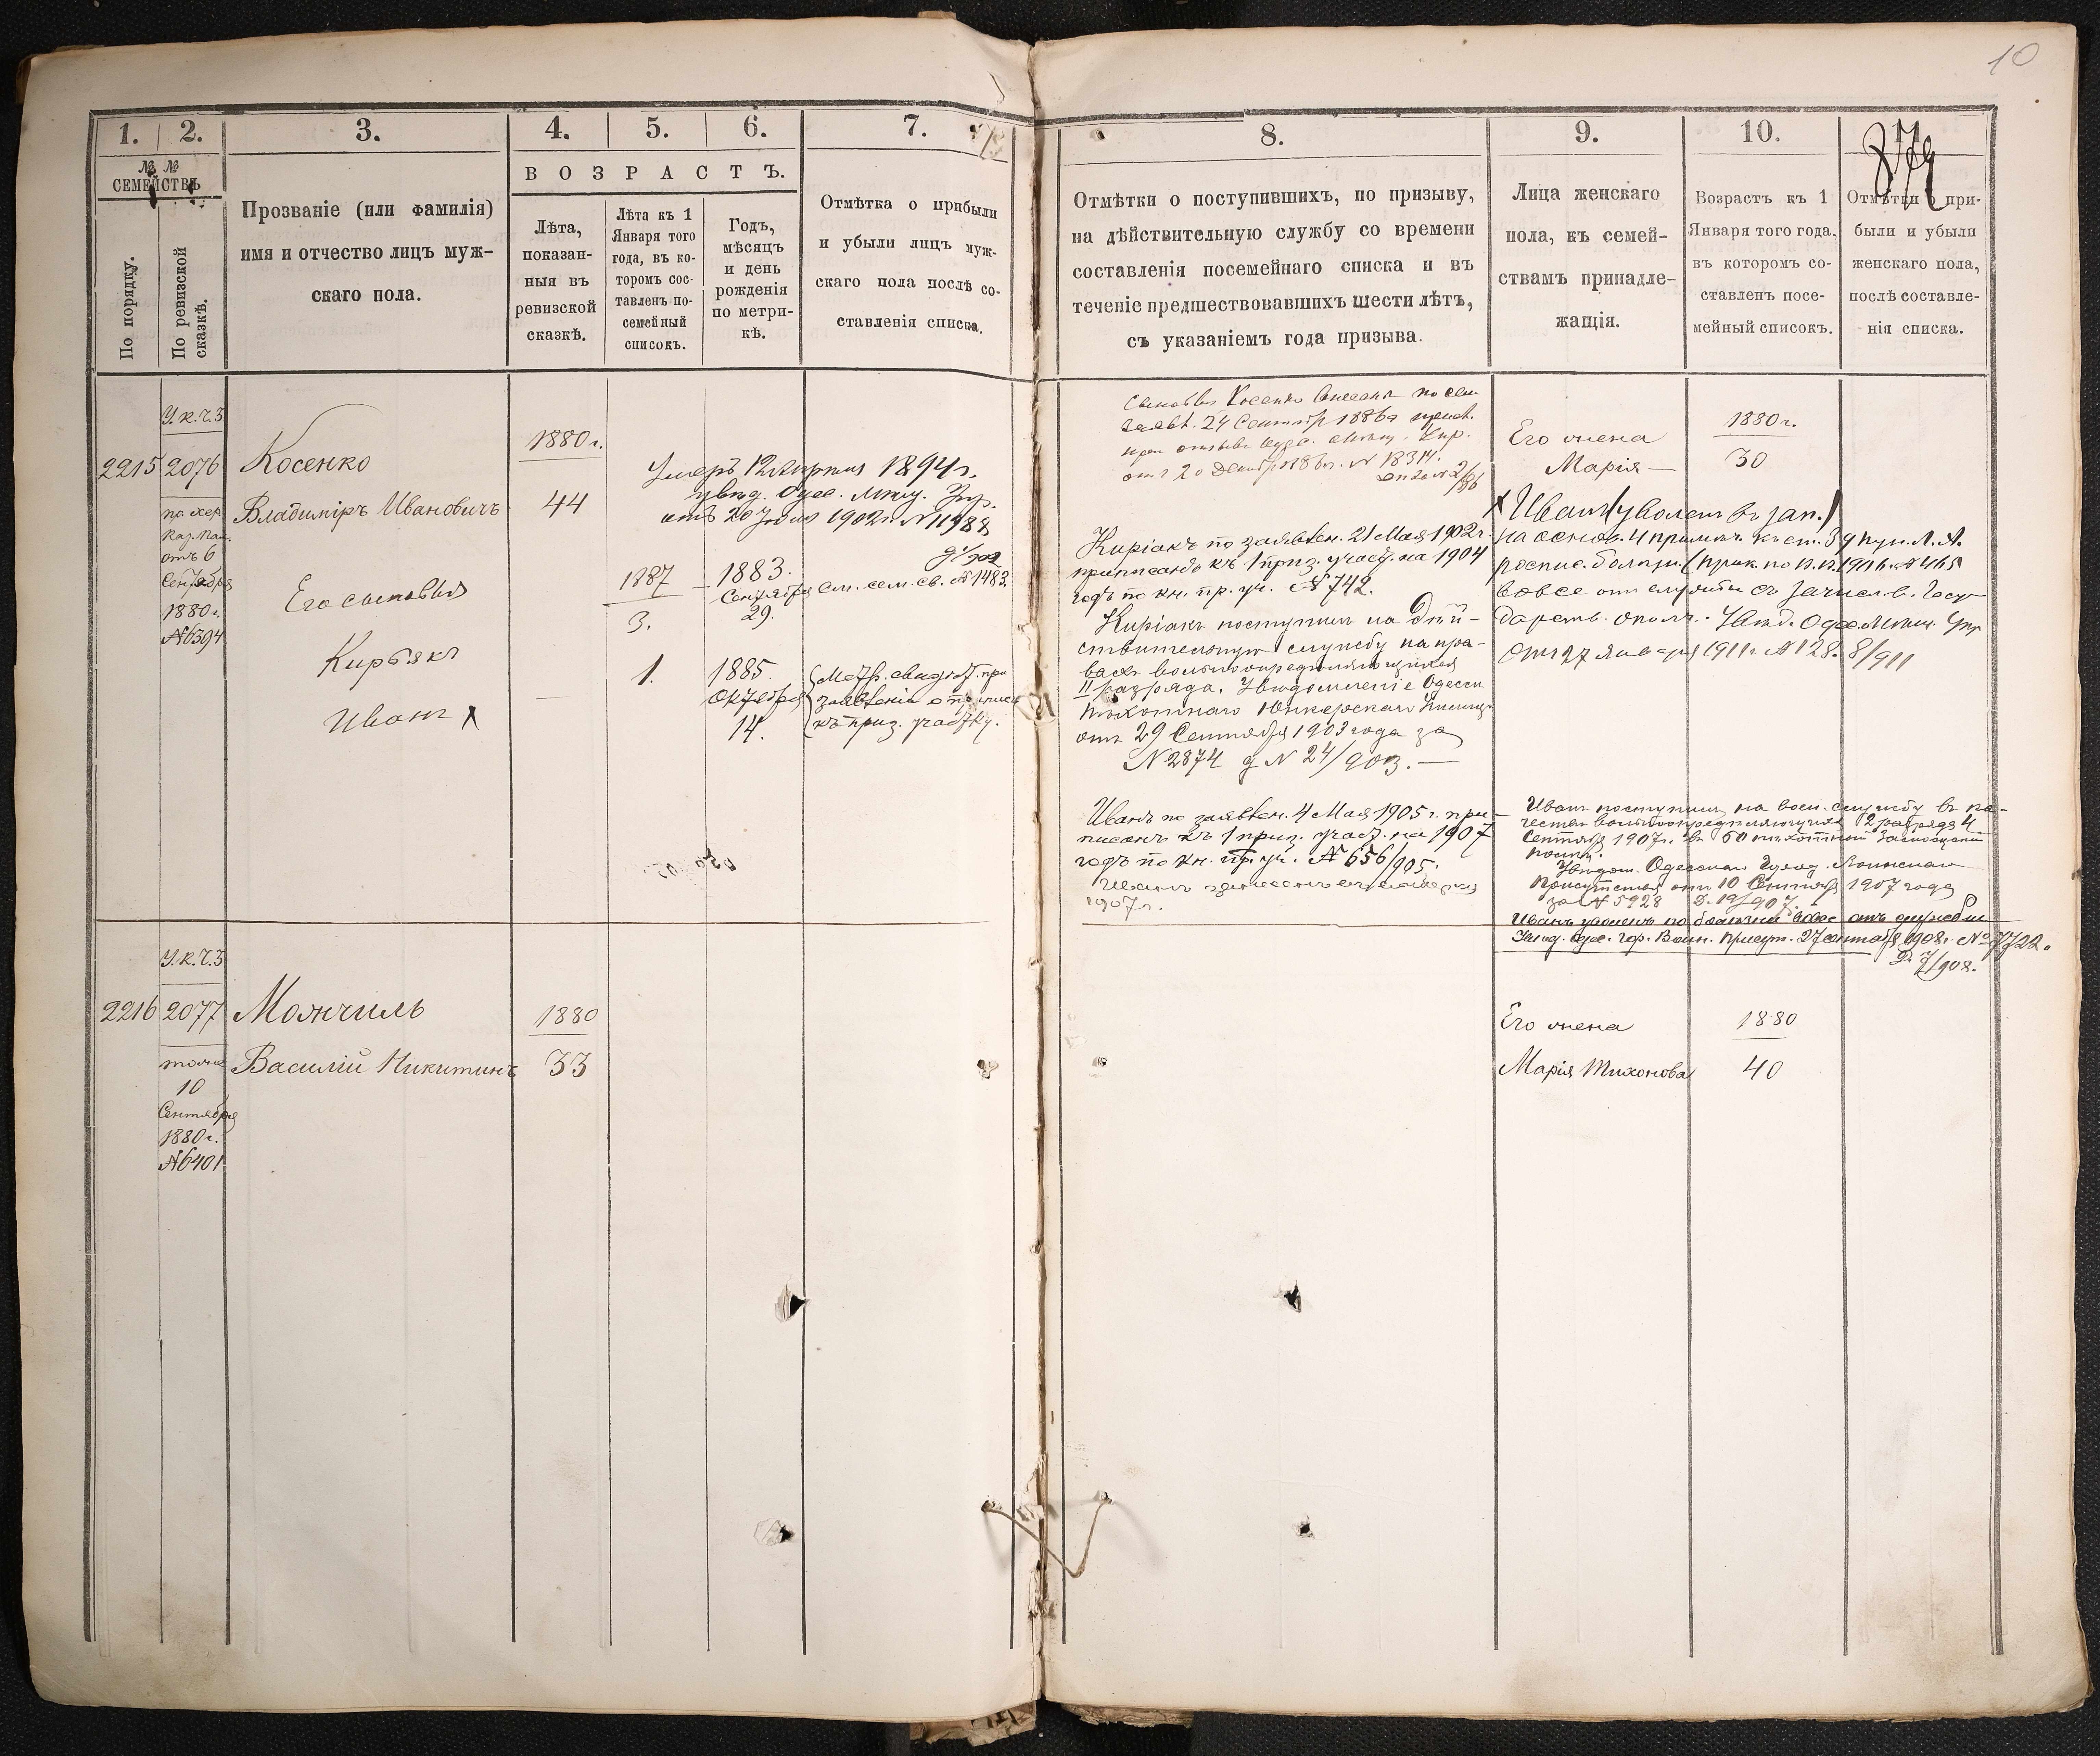 10
1.
2.
3.
4.
5.
6.
7.
8.
9.
10.
11.
379
№ №
СЕМЕЙСТВЪ
По порядку.
По ревизской
сказкѣ.
Прозваніе (или фамилія)
имя и отчество лицъ муж-
скаго пола.
ВОЗРАСТЪ.
Лѣта,
показан-
ныя въ
ревизской
сказкѣ.
Лѣта къ 1
Января того
года, въ ко-
торомъ сос-
тавленъ по-
семейный
списокъ.
Годъ,
мѣсяцъ
и день
рожденія
по метри-
кѣ.
Отмѣтка о прибыли
и убыли лицъ муж-
скаго пола послѣ со-
ставленія списка.
Отмѣтки о поступившихъ, по призыву,
на дѣйствительную службу со времени
составленія посемейнаго списка и въ
теченіе предшествовавшихъ шести лѣтъ,
съ указаніемъ года призыва.
Лица женскаго
пола, къ семей-
ствамъ принадле-
жащія.
Возрастъ къ 1
Января того года,
въ которомъ со-
ставленъ посе-
мейный списокъ.
Отмѣтки о при-
были и убыли
женскаго пола,
послѣ составле-
нія списка.
У.к.ч.3
2215
2076
отъ 6
Сентября
1880 г.
№6394
Косенко
Владиміръ Ивановичъ
Его сыновья
Кирьякъ
Иванъ х
1880 г.
44
Умеръ 12 Апрѣля 1894 г.
увѣд. Одес. Мѣщ. Упр.
отъ 20 Іюня 1902 г. №11988
1887
3.
1883.
Сентября
29.
см. сем. св. №1483.
1.
1885.
Октября
14.
Метр. свидѣт. при
заявленіи о припискѣ
къ приз. участку.
Сыновья Косенко внесены по
заявл. 24 Сентябр 1886 г
№ 18314.
Киріакъ по заявлен. 21 Мая 1902 г.
приписанъ къ 1 приз. участ. на 1904
годъ по кн. пр. уч. №742.
Киріакъ поступилъ на дѣй-
ствительную службу на пра-
вахъ вольноопредѣляющихся
II разряда. Увѣдомленіе Одесск
Пѣхотнаго Юнкерскаго Училищ
отъ 29 Сентября 1903 года за
№2874 д №24/903.
Иванъ по заявлен. 4 Мая 1905 г. при-
писанъ къ 1 приз. участ. на 1907
годъ по кн. пр. уч. №656/905.
1907 г.
Его жена
Марія
1880 г.
30
х Иванъ (уволенъ въ зап.)
на основ. 4 примѣч. къ ст. 39 пун. Л. А.
вовсе отъ службы съ зачисл. в. Госу-
дарств. ополч. Увѣд. Одес. Мѣщ. Упр
отъ 27 Января 1911 г. №128. 8/911
Иванъ поступилъ на воен. службу въ ка-
чествѣ вольноопредѣляющихся 2 разряда 4
Сентября 1907 г. въ 60 пѣхотный Замосцскій
полкъ.
Увѣдом. Одесскаго Город. Воинскаго
Присутствія отъ 10 Сентября 1907 года
за № 5928 Д. 19/907.
Иванъ уволенъ по болѣзни вовсе отъ службы
Увѣд. Одес. гор. Воин. присут. 27 сентября 1908 г. №7722.
Д. 7/908.
У.к.ч.3
2216
2077
тоже
10
Сентября
1880 г.
№6401
Василій Никитинъ
1880
33
Его жена
Марія Тихонова
1880
40